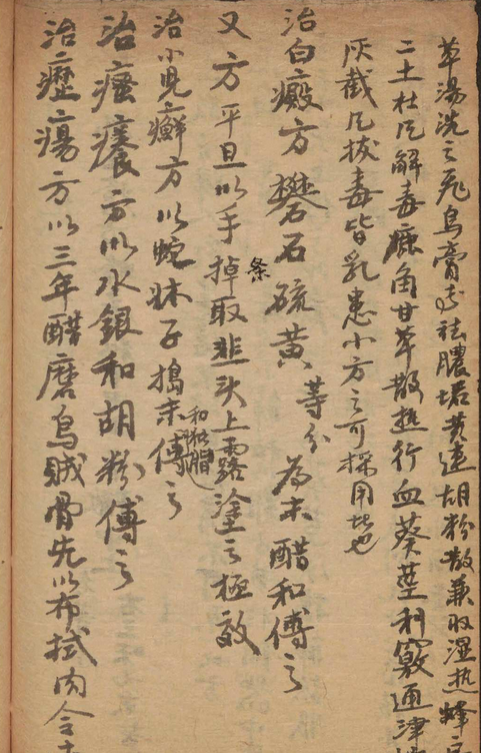 草湯洗之飛烏膏散祛膿堵黃連胡粉散兼収湿热蜂房
二土杜瓜解毒鹿角甘草散热行血葵茎利竅通津
灰截瓜拔毒皆乳患小方之可採用者也
治白癜方礬石硫黄等分為末醋和傅之
又方平旦以手掉取韭头上露塗之極效
治小児癬方以蛇牀子搗末和猪脂傅之
治瘙癢方以水銀和胡粉傅之
治癧瘍方以三年醋磨烏賊骨先以布拭肉令